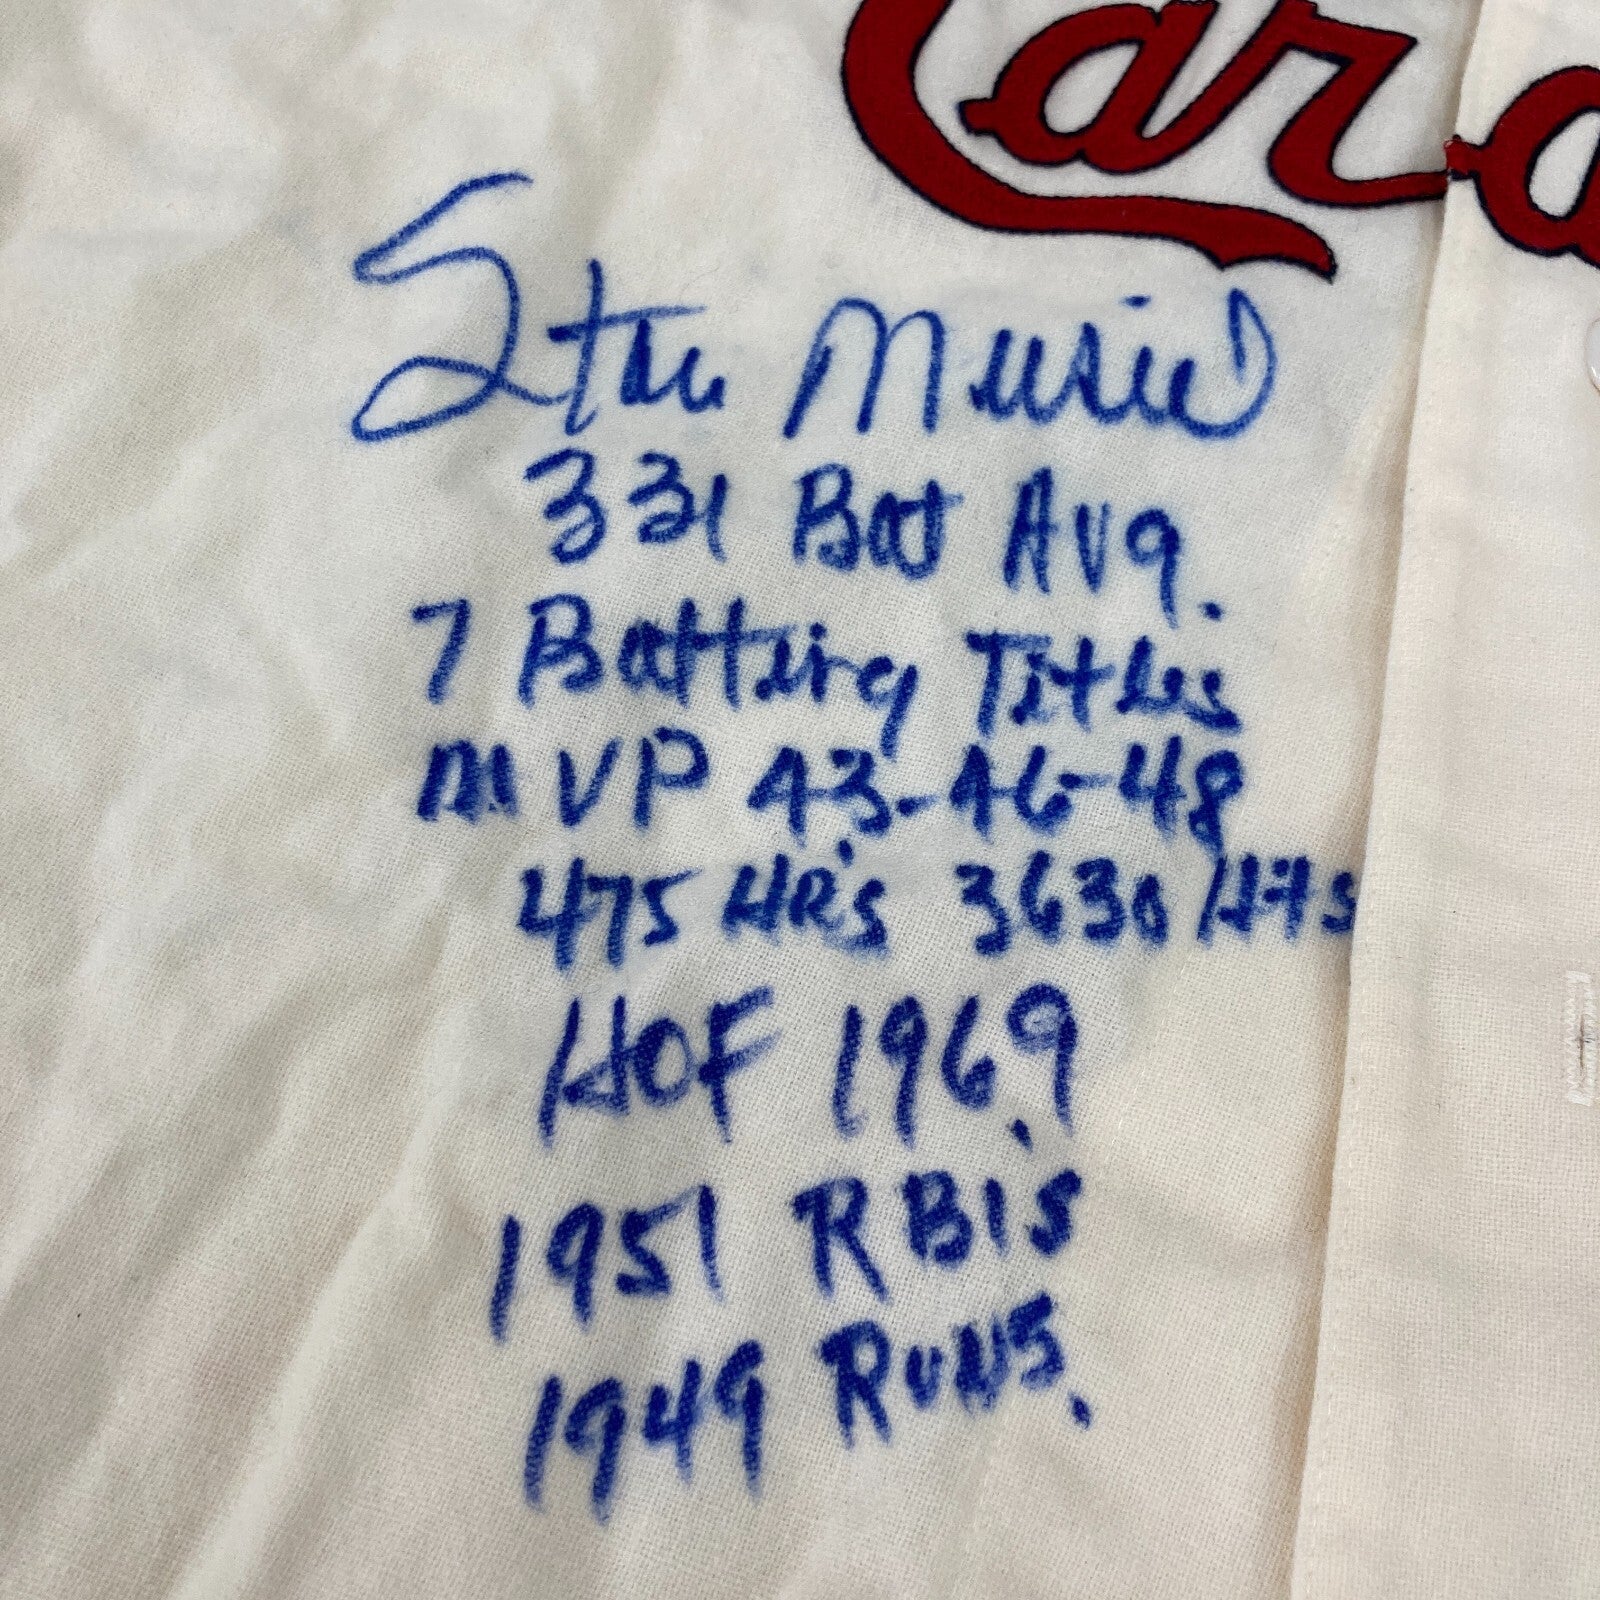 Carda
Stan Musial
331 Bat Avg.
7 Batting Titles
MVP 43-46-48
475 HR's 3630 Hits
HOF 1969.
1951 RBIS
1949 RUNS.